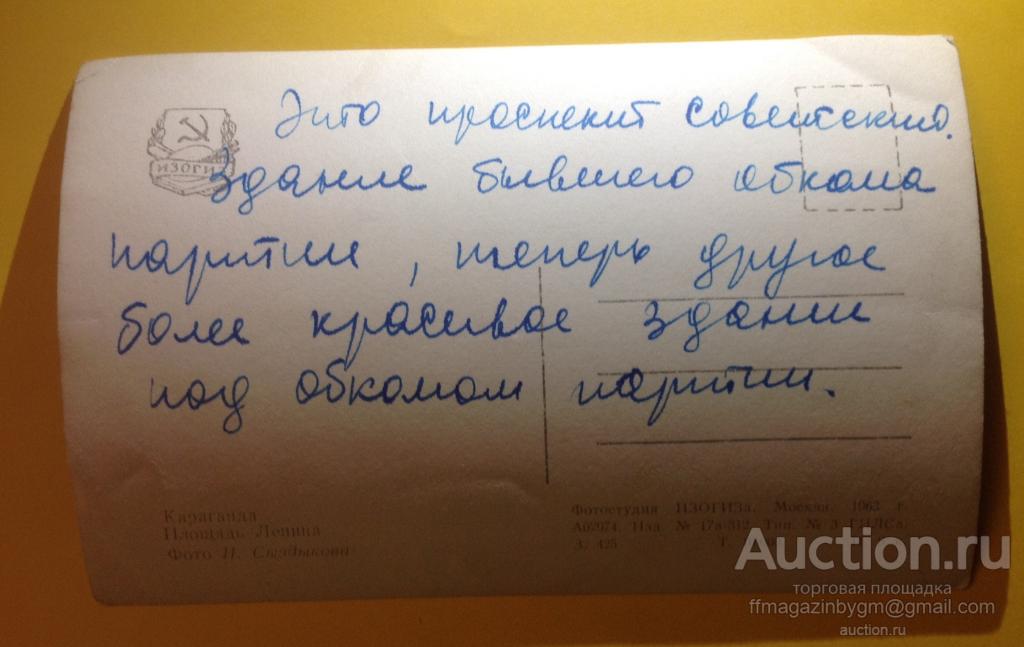 Это проспект Советский.
ИЗОГИЗ
Здание бывшего обкома
партии, теперь другое
более красивое здание
под обкомом партии.
Караганда
Площадь Ленина
Фото И. Сыздыкова
Фотостудия ИЗОГИЗа. Москва. 1963 г.
А02974. Изд. № 17а-312. Тип. № 3 ГНЛСа.
З. 425 Т.
Auction.ru
торговая площадка
ffmagazinbygm@gmail.com
auction.ru